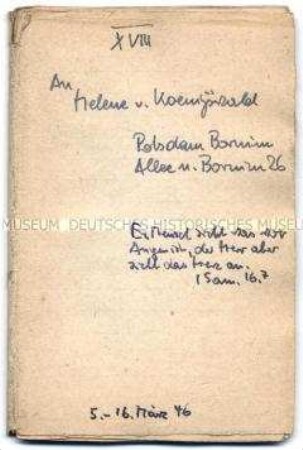 XVIII
An
Helene v. Koenigswald
Potsdam Bornim
Allee n. Bornim 26
MUSEUM DEUTSCHES HISTORISCHES MUSEUM
Ein Mensch sieht was vor
Augen ist, der Herr aber
sieht das Herz an.
1 Sam. 16.7
5.-16. März 46